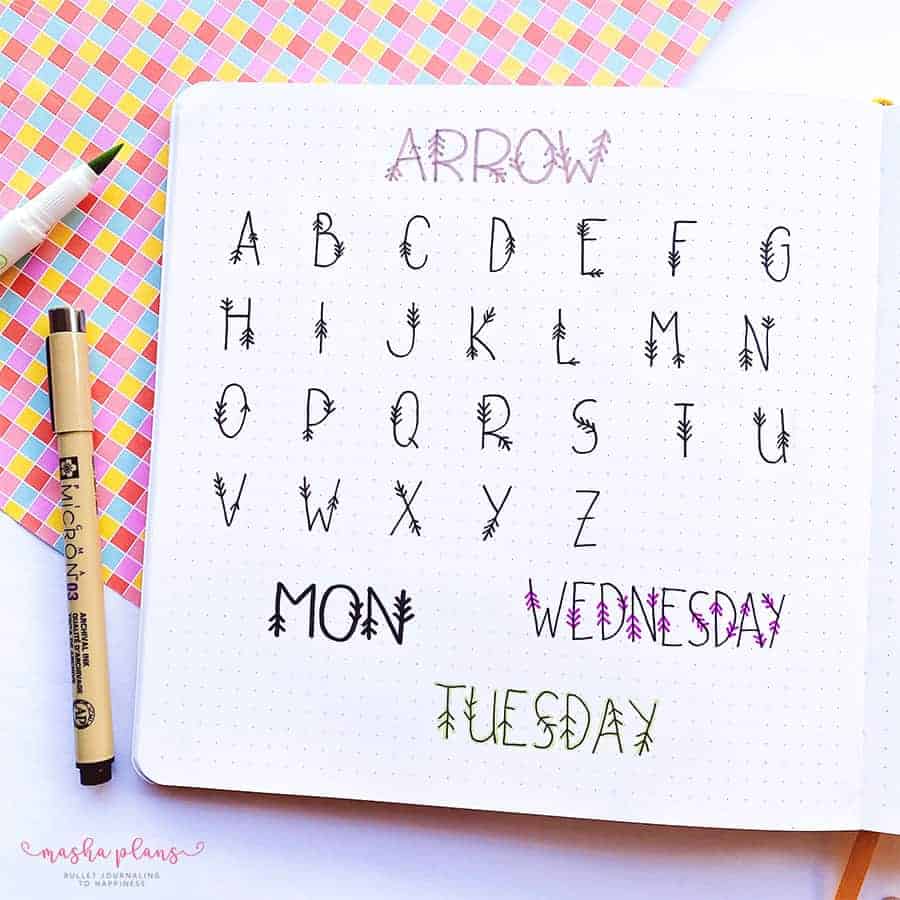 ARROW
A B C D E F G
H I J K L M N
O P Q R S T U
V W X Y Z
MON WEDNESDAY
TUESDAY
PIGMA
MICRON 03
ARCHIVAL INK
QUALITÉ D'ARCHIVAGE
masha plans
BULLET JOURNALING
TO HAPPINESS